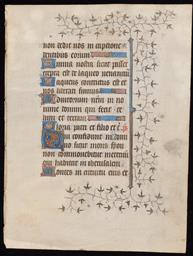 non dedit nos in captione
dentibus eorum
Anima nostra sicut passer
erepta est de laqueo venantiu
Laqueus contritus est et
nos liberati sumus
Adiutorium nrm in no
mine domini qui fecit ce
lum et terram
Gloria patri et filio et
Qui confidunt in dno
sicut mons syon
non commovebitur
qui habitat in iherusalem
Montes in circuitu eius et